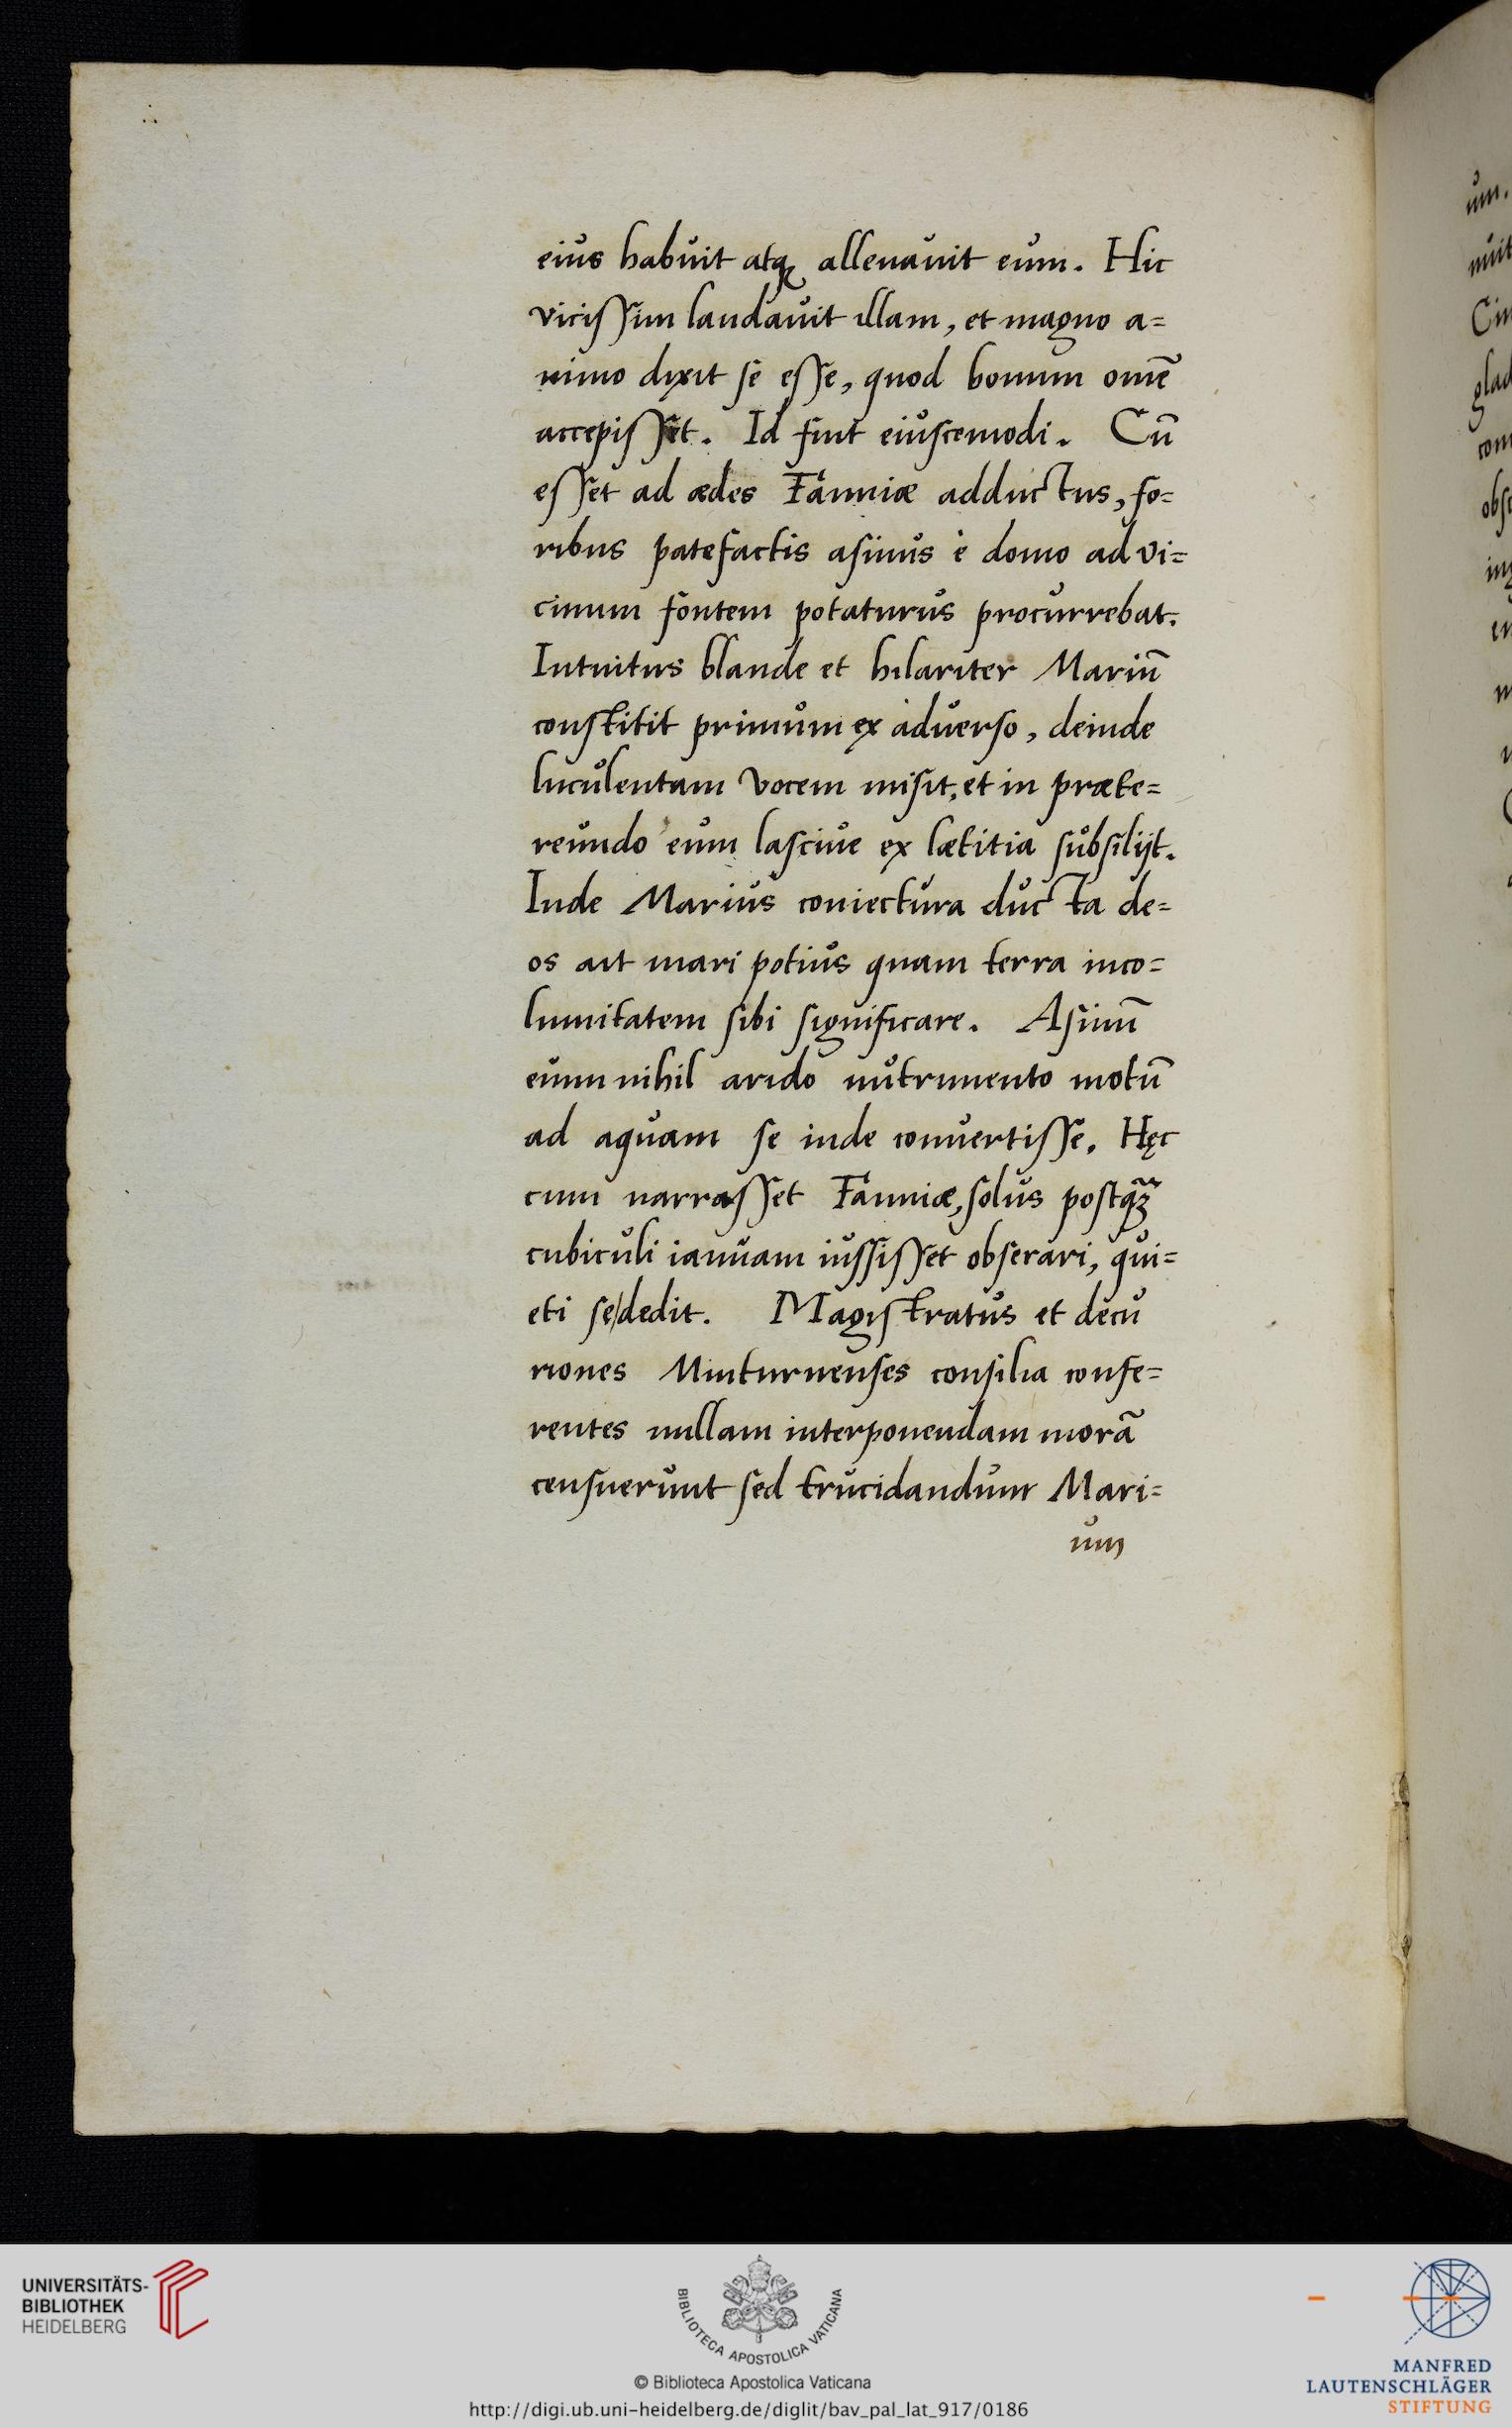 eius habuit atq; alleuauit eum. Hic
viciſſim laudauit illam, et magno a=
nimo dixit ſe eſſe, quod bonum omē
accepiſſet. Id fuit eiuſcemodi. Cū
eſſet ad ædes Fanniæ adductus, fo=
ribus patefactis aſinus è domo ad vi=
cinum fontem potaturus procurrebat.
Intuitus blande et hilariter Mariū
conſtitit primum ex aduerſo, deinde
luculentam vocem miſit, et in præte=
reundo eum laſciue ex lætitia ſubſilijt.
Inde Marius coniectura ducta de=
os ait mari potius quam terra inco=
lumitatem ſibi ſignificare. Aſinū
eum nihil arido nutrimento motū
ad aquam ſe inde conuertiſſe. Hęc
cum narraſſet Fanniæ, ſolus poſtq̃ȝ
cubiculi ianuam iuſſiſſet obſerari, qui=
eti ſe/dedit. Magiſtratus et decu
riones Minturnenſes conſilia confe=
rentes nullam interponendam morā
cenſuerunt ſed trucidandum Mari=
um
um.
UNIVERSITÄTS-
BIBLIOTHEK
HEIDELBERG
BIBLIOTECA APOSTOLICA VATICANA
© Biblioteca Apostolica Vaticana
http://digi.ub.uni-heidelberg.de/diglit/bav_pal_lat_917/0186
MANFRED
LAUTENSCHLÄGER
STIFTUNG